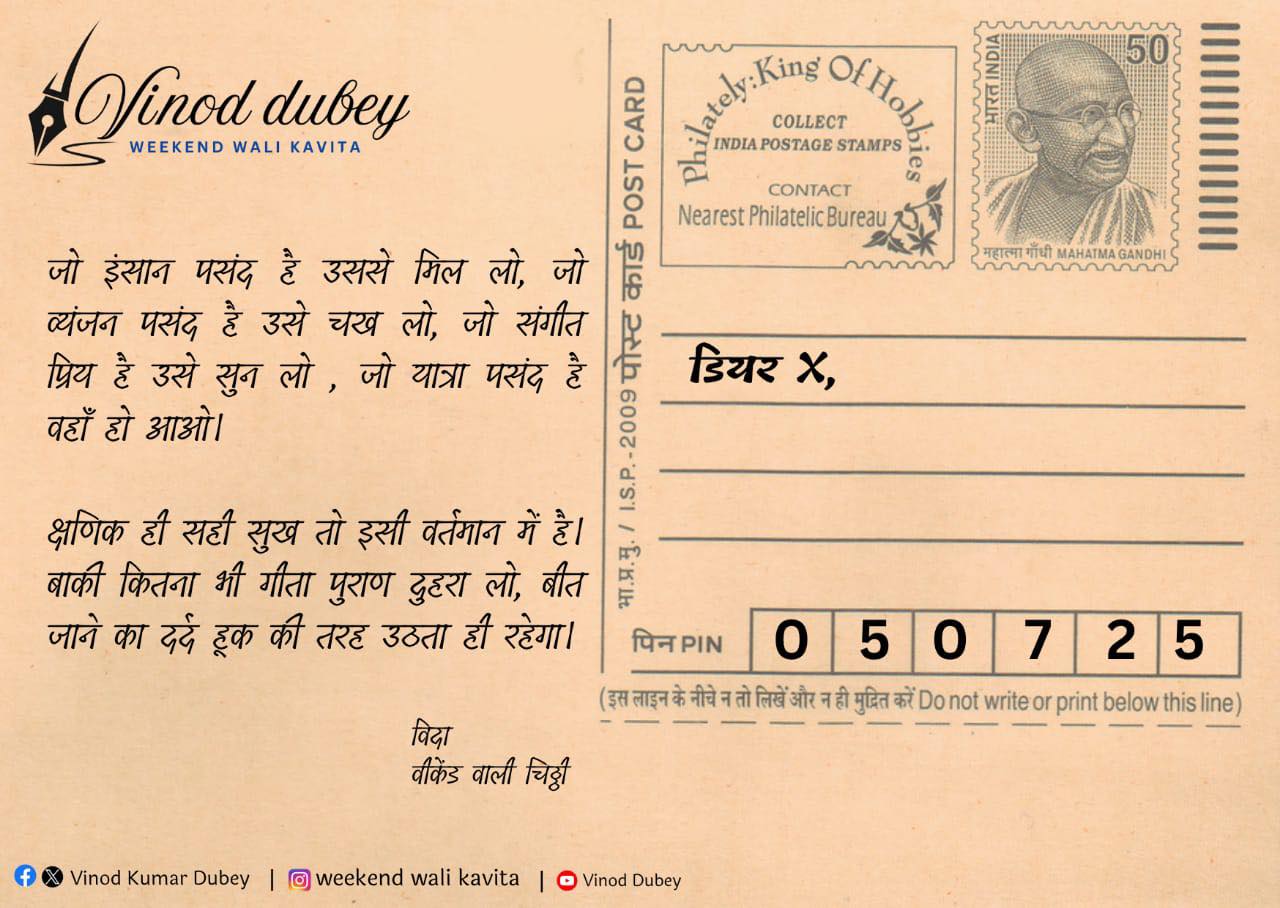 Vinod dubey
WEEKEND WALI KAVITA
जो इंसान पसंद है उससे मिल लो, जो
व्यंजन पसंद है उसे चख लो, जो संगीत
प्रिय है उसे सुन लो , जो यात्रा पसंद है
वहाँ हो आओ।
क्षणिक ही सही सुख तो इसी वर्तमान में है।
बाकी कितना भी गीता पुराण दुहरा लो, बीत
जाने का दर्द हूक की तरह उठता ही रहेगा।
विदा
वीकेंड वाली चिठ्ठी
भा.प्र.मु. / I.S.P.-2009 पोस्ट कार्ड POST CARD
Philately:King Of Hobbies
COLLECT
INDIA POSTAGE STAMPS
CONTACT
Nearest Philatelic Bureau
भारत INDIA
50
महात्मा गाँधी MAHATMA GANDHI
डियर X,
पिन PIN 0 5 0 7 2 5
(इस लाइन के नीचे न तो लिखें और न ही मुद्रित करें Do not write or print below this line)
Vinod Kumar Dubey | weekend wali kavita | Vinod Dubey